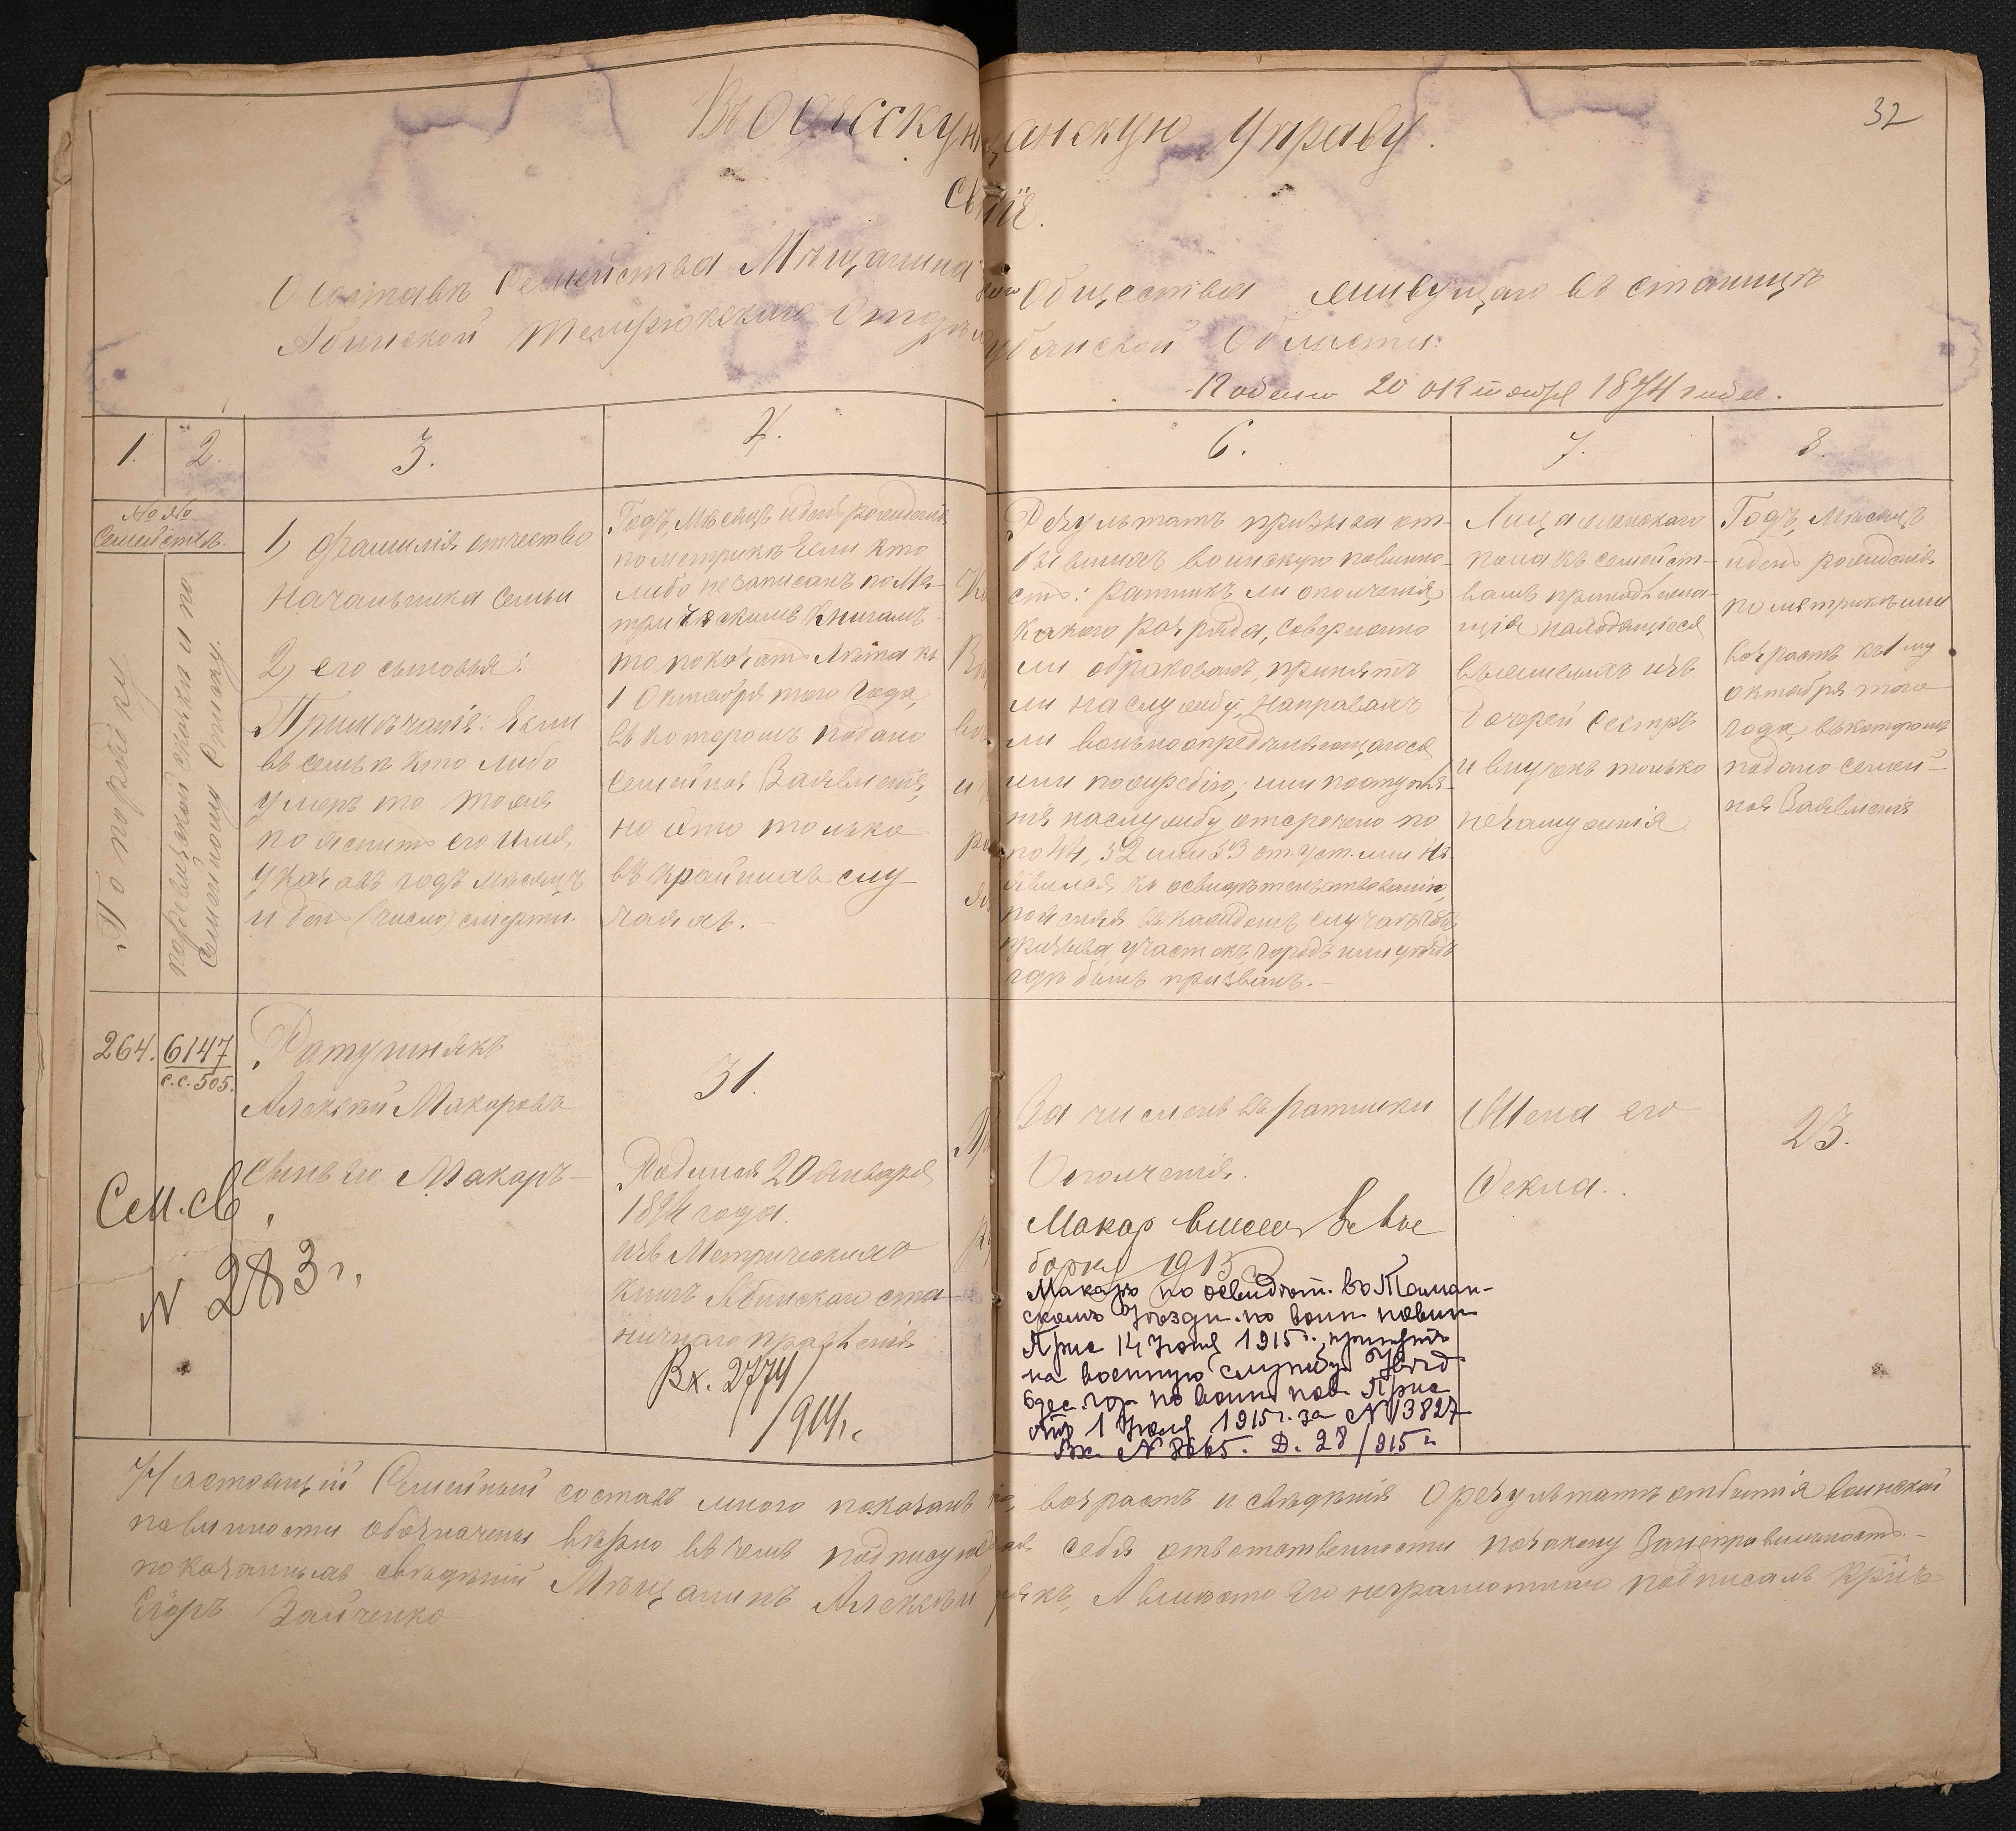 32
Въ Одесску щанскую Управу.
О составѣ Семейства Мѣщанина Общества живущаго въ станицѣ
Абинской Темрюкскаго Отдѣл убанской Области.
20 октября
1. 2. 3. 4. 6. 7. 8.
№№ Семействъ.
По порядку
ревизской сказки и по
Семейному Списку.
1) фамилія отчество
Начальника Семьи
2) его сыновья:
Примѣчанія: Если
въ семьѣ кто либо
умеръ то тоже
пояснить его имя,
указавъ годъ мѣсяцъ
и день (число) смерти.
Годъ, Мѣсяцъ и день рожденія
по метрикѣ Если кто
либо не записанъ по Ме-
трическимъ Книгамъ
то показать Лѣта къ
1 Октября того Года,
въ которомъ подано
Семейное Заявленія,
но это только
въ крайнихъ слу-
чаяхъ.-
Результатъ призыва от-
бывшихъ воинскую повинно-
сть: ратникъ ли ополченія,
какого разряда, совершенно
ли обракованъ, принятъ
ли на службу, направахъ
ли вольноопредѣляющагося
или по жребію, или поступле-
нія на службу отсрочено по
по 44, 52 или 53 ст. уст. или не
явился къ освидѣтельствованію,
поясняя въ каждомъ случаѣ годъ
призыва, участокъ, городъ или уѣздъ
гдѣ былъ призванъ.-
Лица женскаго
пола къ семейст-
вамъ принадлежа-
щія находящіеся
въ живыхъ изъ
дочерей сестръ
и внучекъ только
незамужнія.
Годъ, Мѣсяцъ
и день рожденія
по метрикѣ или
возрастъ къ 1му
октября того
года, въ которомъ
подано семей-
ное Заявленія
264. 6147
с.с. 505.
Ратушнякъ
Алексѣй Макаровъ
31.
Зачисленъ въ ратники
Ополченія.
Жена его
Фекла.
23.
Сынъ его Макаръ-
Родился 20 Января
189 года.
изъ Метрическихъ
книгъ Абинскаго ста-
ничнаго правленія
Вх. 2774/914 г.
Сем. св.
N 283 г.
Макар внесен
1915
Макаръ по освидѣт. въ Таман-
скомъ Уѣздн. по воин повин
Прис 14 Іюня 1915 г., принятъ
на военную службу. Увѣд
Одес. гор по воин. пов. Прис
отъ 1 Іюля 1915 г. за N 13827
Вх. N 8665. Д. 28/915 г.
Настоящій Семейный составъ мною показанъ возрастъ и свѣдѣнія О результатѣ отбытія воинской
повинности обозначены вѣрно въ чемъ подписуюсь себя отвѣтственности по закону Занеправильность-
показанныхъ свѣдѣній Мѣщанинъ Алексѣй някъ, А вмѣсто Его неграмотнаго подписалъ
Егоръ Зайченко